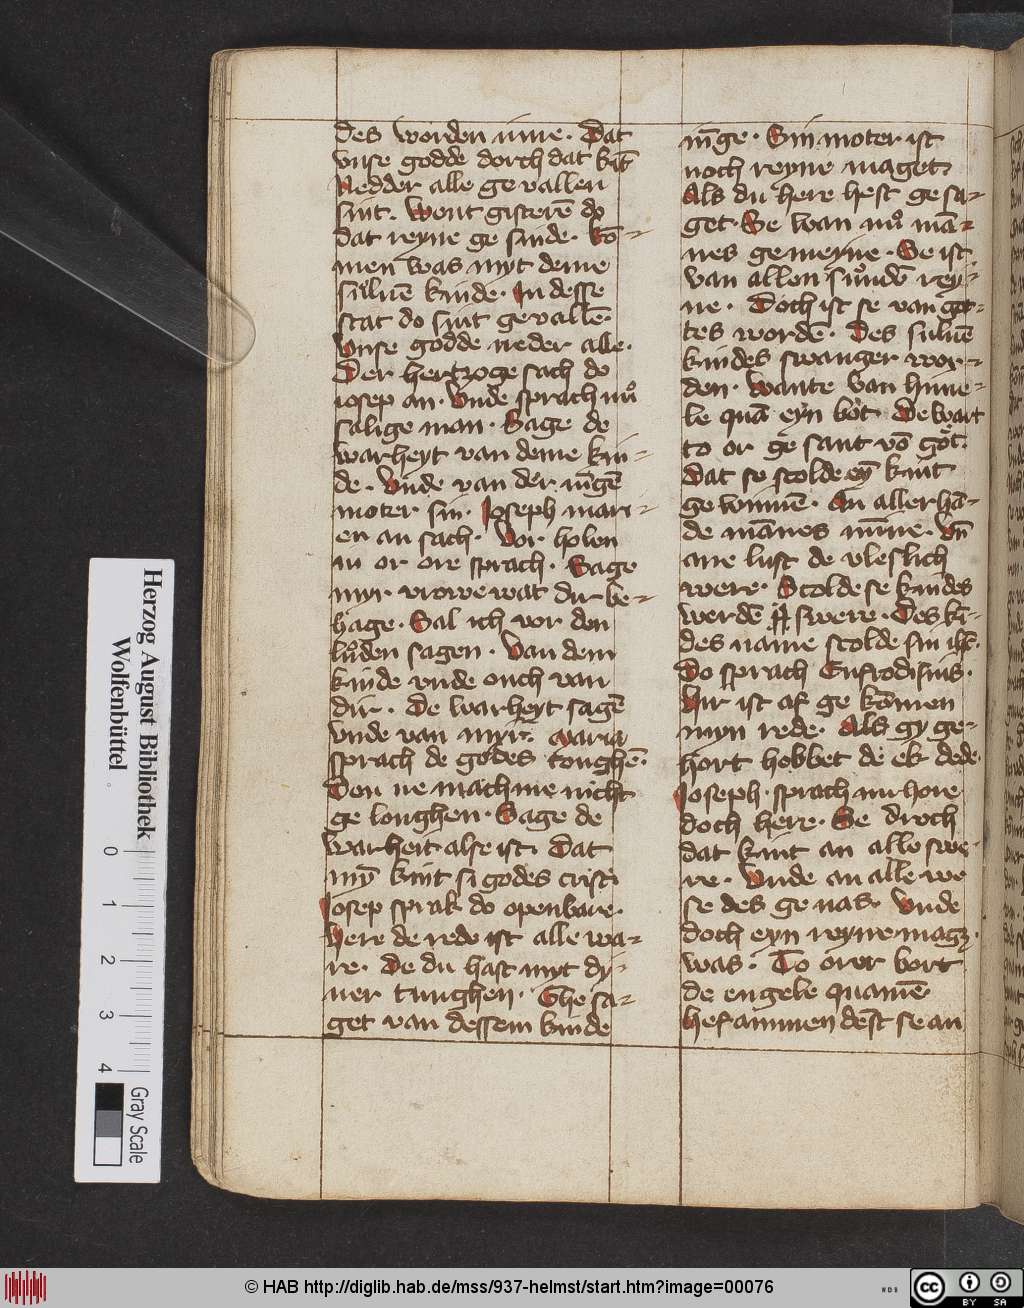 des worden inne. Dat
vnse godde dorch dat kīt
Nedder alle gevallen
sint. Went gisterē do
dat reyne ge sinde. Kō-
men was myt deme
suluē kinde. In desse
stat do sint gevallē.
Vnse godde neder alle.
Der hertzoge sach do
iosep an. Vnde sprach nů
salige man. Sage de
warheyt van deme kin-
de. Vnde van der iūgē
moter sin. Joseph mari-
en an sach. Vor holen
in or ore sprach. Sage
myr vrowe wat dir be-
hage. Sal ich vor den
lůden sagen. Van dem
kinde vnde ouch van
dir. De warheyt sagē
vnde van myr. Maria
sprach de godes tonghē.
Den ne mach me nicht
ge longhen. Sage de
warheit alse ist. Dat
mȳ kint si godes crist
Josep sprak do openbare.
Here de rede ist alle wa-
re. De du hast myt dy-
ner tunghen. Ghe sa-
get van dessem kinde
iūge. Sin moter ist
noch reyne maget
Als du here hest ge sa-
get. Se wan nů mā-
nes gemeyne. Se ist
van allen sůnden rey-
ne. Doch ist se van got-
tes wordē. Des suluē
kindes swanger wor-
den. Wante van hime-
le quā eyn bot. De wart
to or ge sant vō got.
Dat se scolde eȳ kint
gewinnē. An aller hā-
de mānes mīne. Vn̄
ane lust de vleslich
were. Scolde se kindes
werdē swere. Des kī-
des name scolde sin ihc̄.
Do sprach Eufrodisius.
Hir ist af ge komen
myn rede. Als gy ge-
hort hebbet de ek dede.
Joseph sprach nu hore
doch here. Se droch
dat kint an alle swe-
re. Vnde an alle we
se des ge nas. Vnde
doch eyn reyne magt
was. To orer bort
de engele quamē
hefammen dēst se an
Herzog August Bibliothek
Wolfenbüttel
0 1 2 3 4
Gray Scale
© HAB http://diglib.hab.de/mss/937-helmst/start.htm?image=00076
WDB
cc BY SA